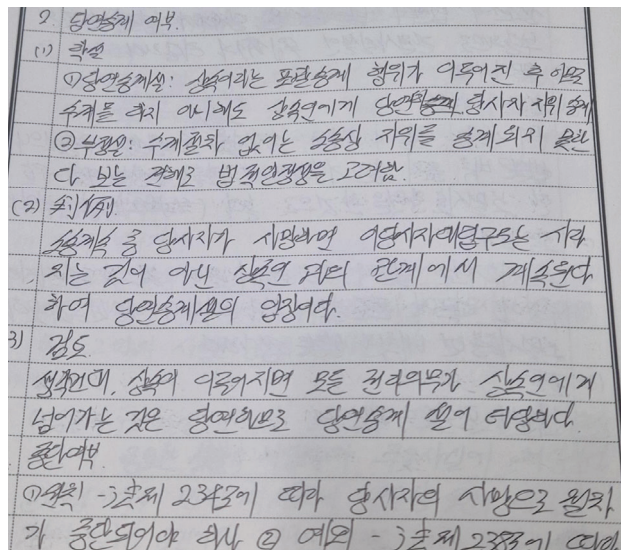 2. 당연승계 여부.
(1) 학설
①당연승계설: 상속이라는 포괄승계 행위가 이루어진 후 아무
수계를 하지 아니해도 상속인에게 당연히 당사자 지위 승계
②부정설: 수계절차 없이는 소송상 지위를 승계되지 못한
다 보는 견해로 법적안정성을 고려함.
(2) 判例.
소송계속 중 당사자가 사망하면 이당사자대립구조는 사라
지는 것이 아닌 상속인 과의 관계에서 계속된다
하여 당연승계설의 입장이다.
3) 검토
생각건대, 상속이 이루어지면 모든 권리의무가 상속인에게
넘어가는 것은 당연하므로 당연승계 설이 타당하다.
중단여부
①원칙 - 제 에 따라 당사자의 사망으로 절차
가 중단되어야 하나 ② 예외 - 제 에 따라